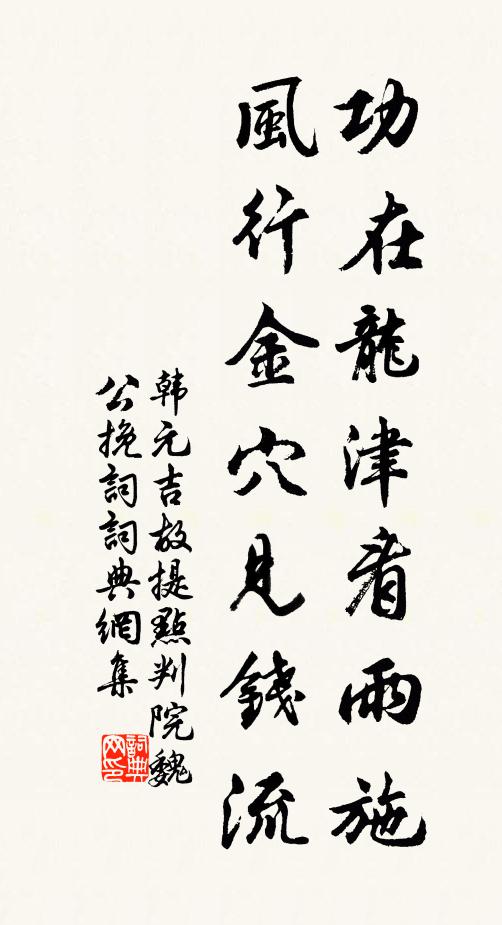 功在龍津看雨施
風行金穴見錢流
韩元吉故提點判院魏
公挽詞詞典網集
詞典
网印